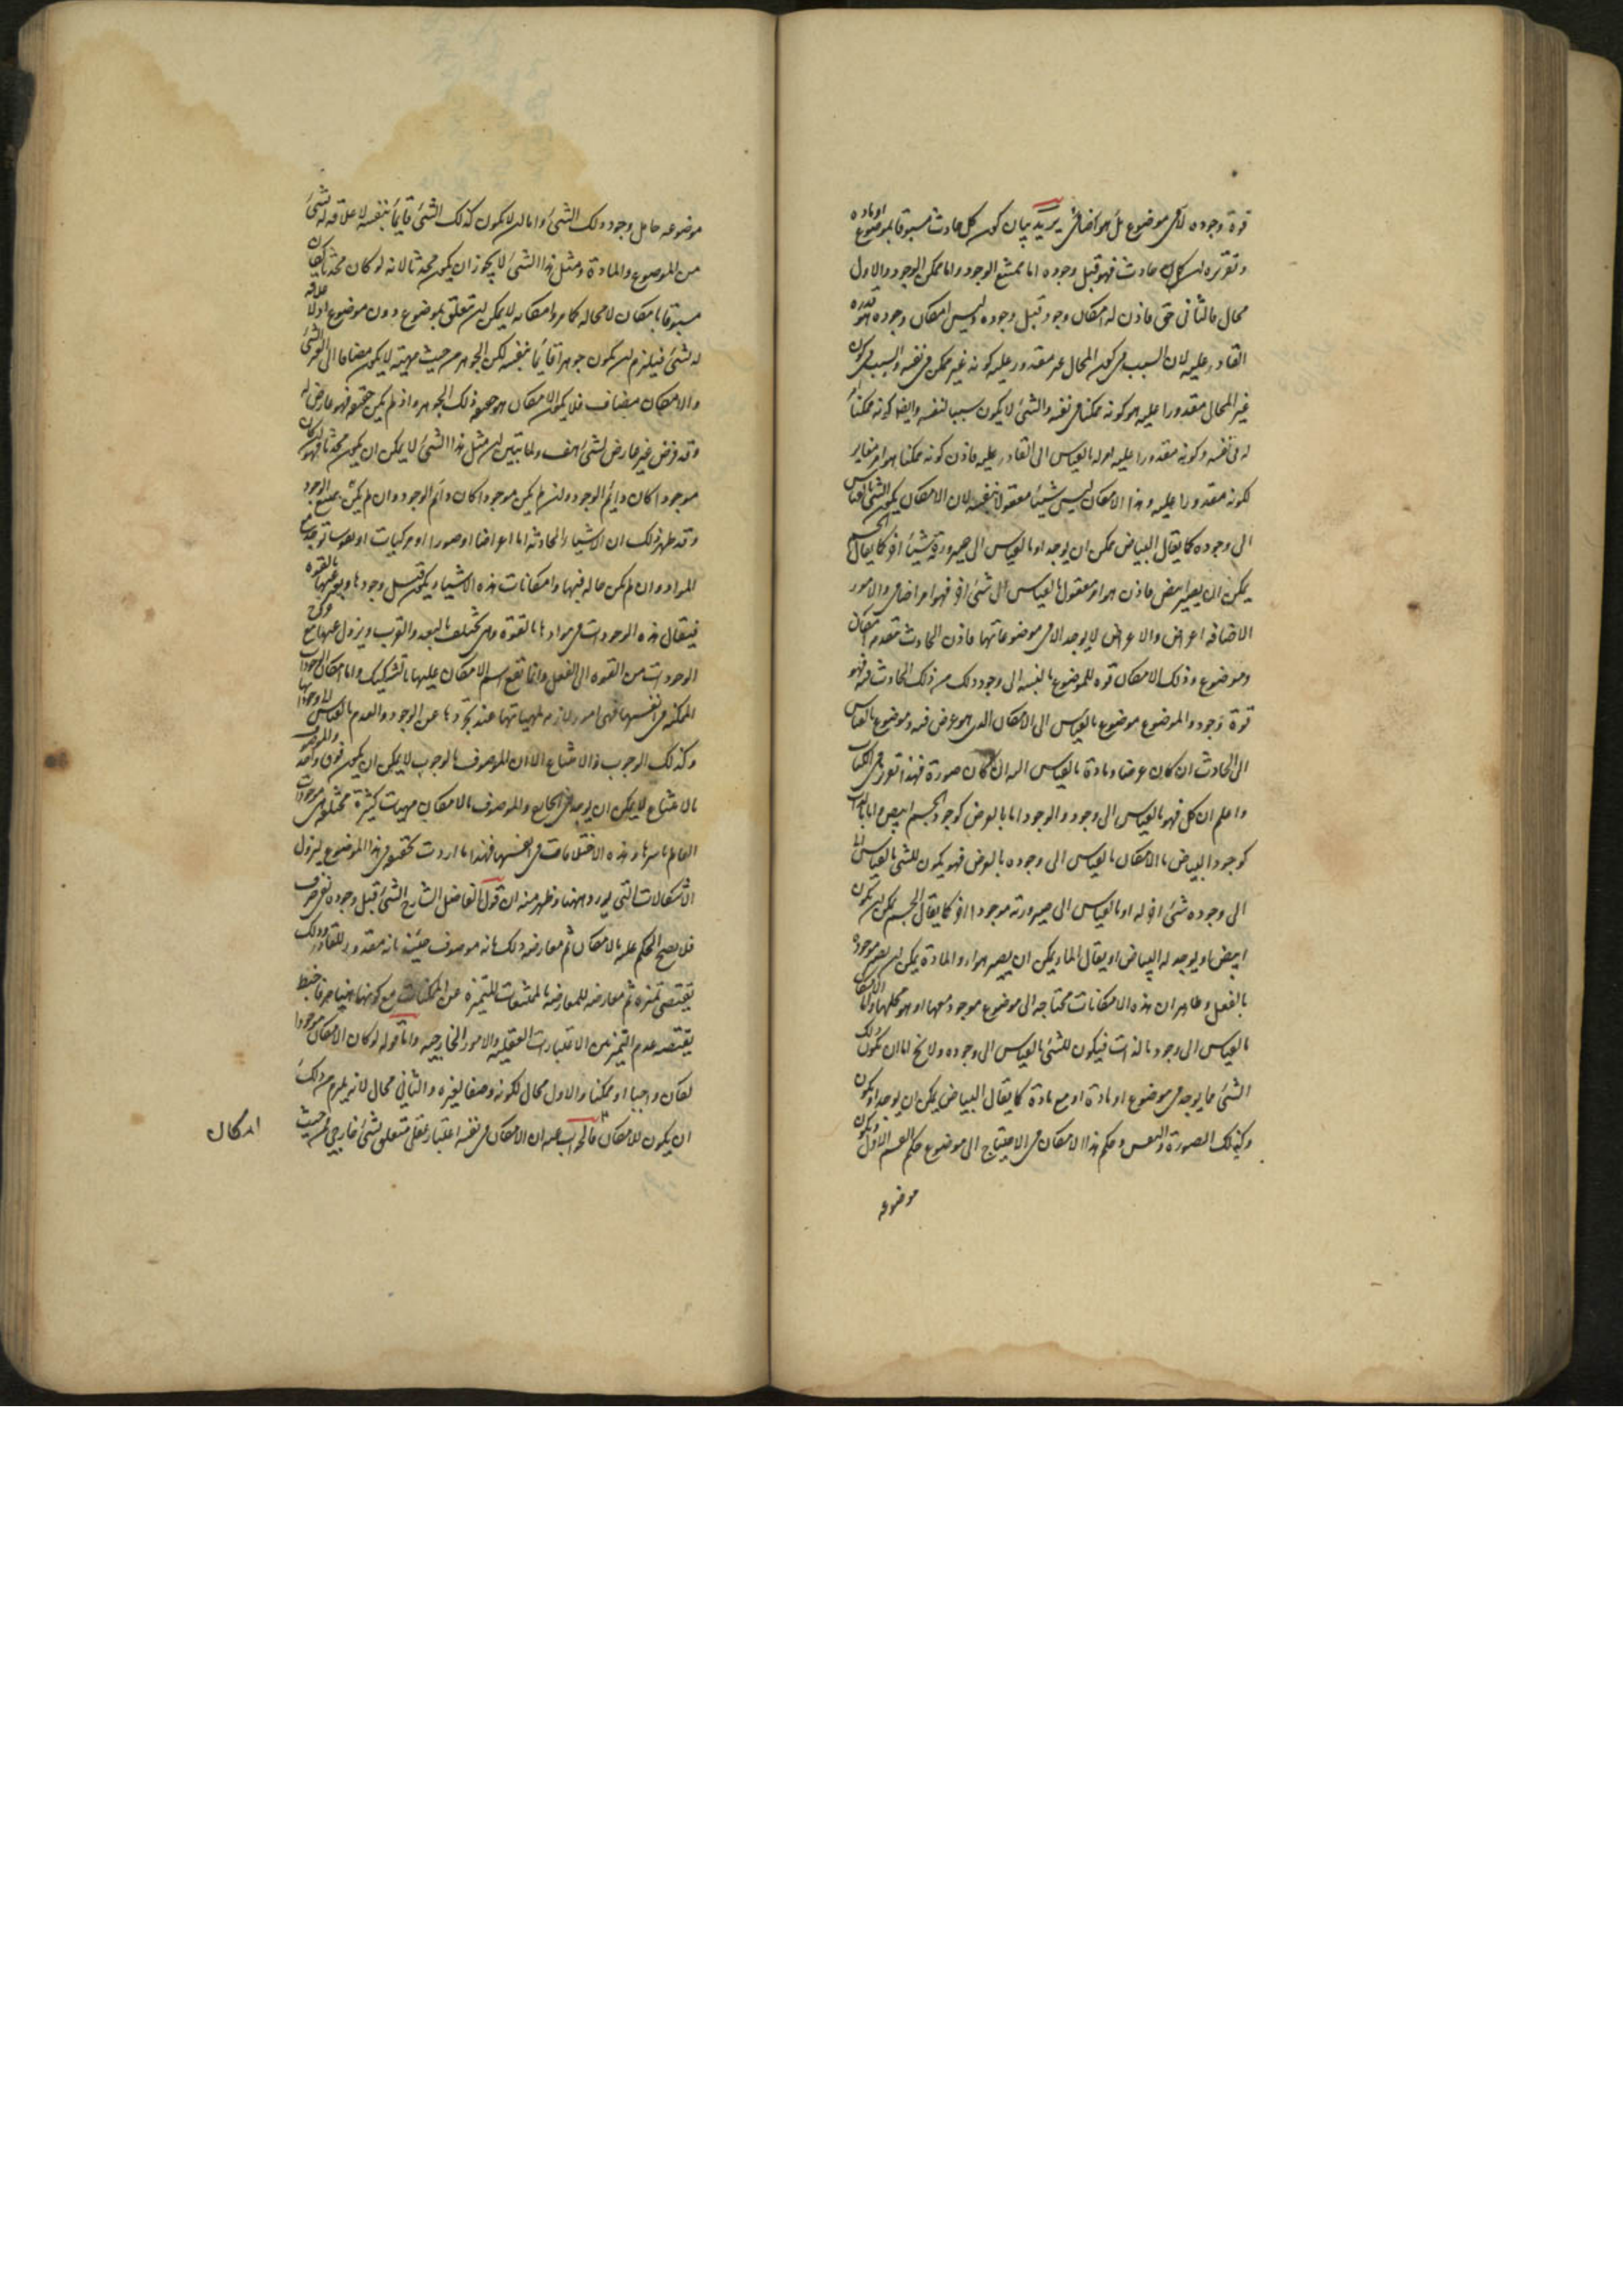 قوة وجوده لا في موضوع بل هو اضافي يريد بيان كون كل حادث مسبوقا بموضوع او مادة
وتقريره ان كل حادث فهو قبل وجوده اما ممتنع الوجود واما ممكن الوجود والاول
محال فالثاني حق فاذن له امكان وجود قبل وجوده وليس امكان وجوده هو قدرة
القادر عليه لان السبب في كون المحال غير مقدور عليه كونه غير ممكن في نفسه والسبب في كون
غير المحال مقدورا عليه هو كونه ممكنا في نفسه والشئ لا يكون سببا لنفسه وايضا كونه ممكنا امر
له في نفسه وكونه مقدورا عليه امر له بالقياس الى القادر عليه فاذن كونه ممكنا هو امر مغاير
لكونه مقدورا عليه وهذا الامكان ليس شيئا معقولا بنفسه لان الامكان يكون لشئ بالقياس
الى وجوده كما يقال البياض يمكن ان يوجد او بالقياس الى صيرورته شيئا اخر كما يقال الجسم
يمكن ان يصير ابيض فاذن هو امر معقول بالقياس الى شئ اخر فهو امر اضافي والامور
الاضافية اعراض والاعراض لا يوجد الا في موضوعاتها فاذن الحادث يتقدمه امكان
وموضوع وذلك الامكان قوة للموضوع بالنسبة الى وجود ذلك الحادث فيه فهو
قوة وجود والموضوع موضوع بالقياس الى الامكان الذي هو عرض فيه وموضوع بالقياس
الى الحادث ان كان عرضا ومادة بالقياس اليه ان كان صورة فهذا تقرير ما في الكتاب
واعلم ان كل امكان فهو بالقياس الى وجود والوجود اما بالعرض كوجود الجسم ابيض واما بالذات
كوجود البياض فالامكان بالقياس الى وجوده بالعرض فهو يكون للشئ بالقياس
الى وجود شئ اخر له او بالقياس الى صيرورته موجودا اخر كما يقال الجسم يمكن ان يكون
ابيض او يوجد له البياض او يقال الماء يمكن ان يصير هواء والمادة يمكن ان يصير موجودة
بالفعل وظاهر ان هذه الامكانات محتاجة الى موضوع موجود معها او هو محلها واما الامكان
بالقياس الى وجود بالذات فيكون للشئ بالقياس الى وجوده ولا يخ اما ان يكون ذلك
الشئ مما يوجد في موضوع او مادة او مع مادة كما يقال البياض يمكن ان يوجد او يكون
وكذلك الصورة والنفس وحكم هذا الامكان في الاحتياج الى موضوع حكم القسم الاول ويكون
موضوعه
موضوعه حامل وجود ذلك الشئ واما ان لا يكون كذلك الشئ قايما بنفسه لا علاقة له بشئ
من الموضوع والمادة ومثل هذا الشئ لا يجوز ان يكون محدثا لانه لو كان محدثا لكان
مسبوقا بامكان لا محالة كما مر وامكانه لا يمكن ان يتعلق بموضوع دون موضوع اذ لا علاقة
له بشئ فيلزم ان يكون جوهرا قايما بنفسه لكن الجوهر من حيث مهيته لا يكون مضافا الى الغير
والامكان مضاف فلا يكون الامكان هو حقيقة ذلك الجوهر واذ لم يكن حقيقته فهو عارض له
وقد فرض غير عارض لشئ هف ولما تبين ان مثل هذا الشئ لا يمكن ان يكون محدثا فهو ان كان
موجودا كان دايم الوجود وان لم يكن موجودا كان ممتنع الوجود
وقد ظهر من ذلك ان الاشياء الحادثة اما اعراض او صور او مركبات او نفوس توجد مع
المواد وان لم يكن حالة فيها وامكانات هذه الاشياء يكون قبل وجودها ويعبر عنها بالقوة
فيقال هذه الوجودات في موادها بالقوة وهي تختلف بالبعد والقرب ويزول عنها مع خروج
الموجودات من القوة الى الفعل وانما يقع اسم الامكان عليها بالتشكيك واما امكان الموجودات
الممكنة في انفسها فهي امور لازمة لمهياتها عند تجردها عن الوجود والعدم بالقياس الى وجوداتها
وكذلك الوجوب والامتناع الا ان الموصوف بالوجوب لا يمكن ان يكون فوق واحد والموصوف
بالامتناع لا يمكن ان يوجد في الخارج والموصوف بالامكان مهيات كثيرة مختلفة هي موجودات
العالم باسرها وهذه الاختلافات في انفسها فهذا ما اردت تحقيقه في هذا الموضع ليزول
الاشكالات التي يورد ههنا وظهر منه ان قول الفاضل الشارح الشئ قبل وجوده نفي صرف
فلا يصح الحكم عليه بالامكان ثم معارضة ذلك بانه موصوف حينئذ بانه مقدور للقادر وذلك
يقتضي تميزه ثم معارضة للمعارضة بالممتنعات المتميزة عن الممكنات مع كونها نفيا صرفا خبط
يقتضيه عدم التميز بين الاعتبارات العقلية والامور الخارجية واما قوله لو كان الامكان موجودا
لكان واجبا او ممكنا والاول محال لكونه وصفا لغيره والثاني محال لانه يلزم من ذلك
ان يكون للامكان امكان فالجواب عنه ان الامكان في نفسه اعتبار عقلي متعلق بشئ خارجي فمن حيث
امكان